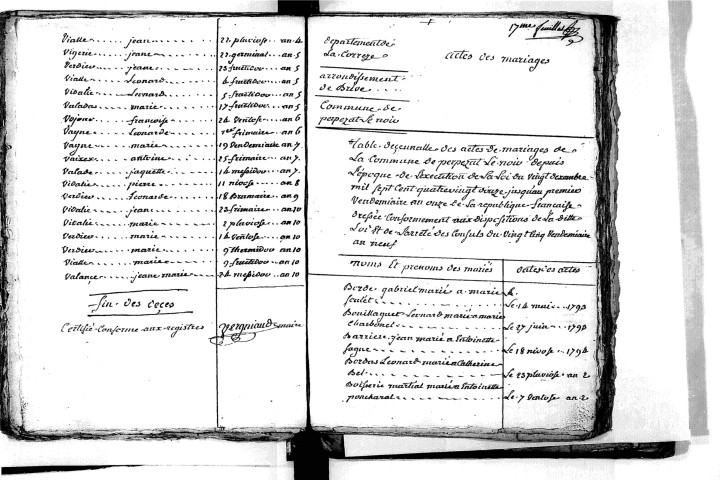 Vialle jean 22 pluviose an 4
Vigerie jeane 22 germinal an 5
Verdier jeane 23 fructidor an 5
Vialle Leonard 4 fructidor an 5
Vidalie Leonard 5 fructidor an 5
Valadas marie 17 fructidor an 5
françoise 24 Ventose an 6
Vayne Leonarde 1er frimaire an 6
Vayne marie 19 Vendemiaire an 7
Vaixex antoine 25 frimaire an 7
Valade jaquette 14 messidor an 7
Vidalie pierre 11 nivose an 8
Verdier Leonarde 18 Brumaire an 9
Vidalie jean 23 frimaire an 10
Vidalie marie 2 pluviose an 10
Verdier marie 14 Ventose an 10
Verdier marie 9 thermidor an 10
Vialle marie 9 fructidor an 10
Valance jeane marie 24 messidor an 10
fin des deçes
Certifié conforme aux registres
Vergniaud maire
17me feuillet
departement de
La Correze
actes des mariages
arrondissement
de Brive
Commune de
perpezat Le noir
table decennalle des actes de mariages de
La Commune de perpezat Le noir depuis
L'epoque de L'execution de La Loi du Vingt decembre
mil sept Cent quatre vingt douze jusquau premier
Vendemiaire an onze de La republique francaise
dressée Conformement aux dispositions de La ditte
Loi et de L'arreté des Consuls du Vingt Cinq Vendemiaire
an neuf
noms Et prenoms des mariés dates des actes
Borde gabriel marié a marie
Le 14 mai 1793
Bouillaguet Leonard marié a marie
Charbonel Le 27 juin 1793
Barriere jean marié a Antoinette
fagne Le 18 nivose 1794
Bordas Leonard marié a Catherine
Bel Le 23 pluviose an 2
Boisserie martial marié a Antoinette
poncharal Le 7 Ventose an 2